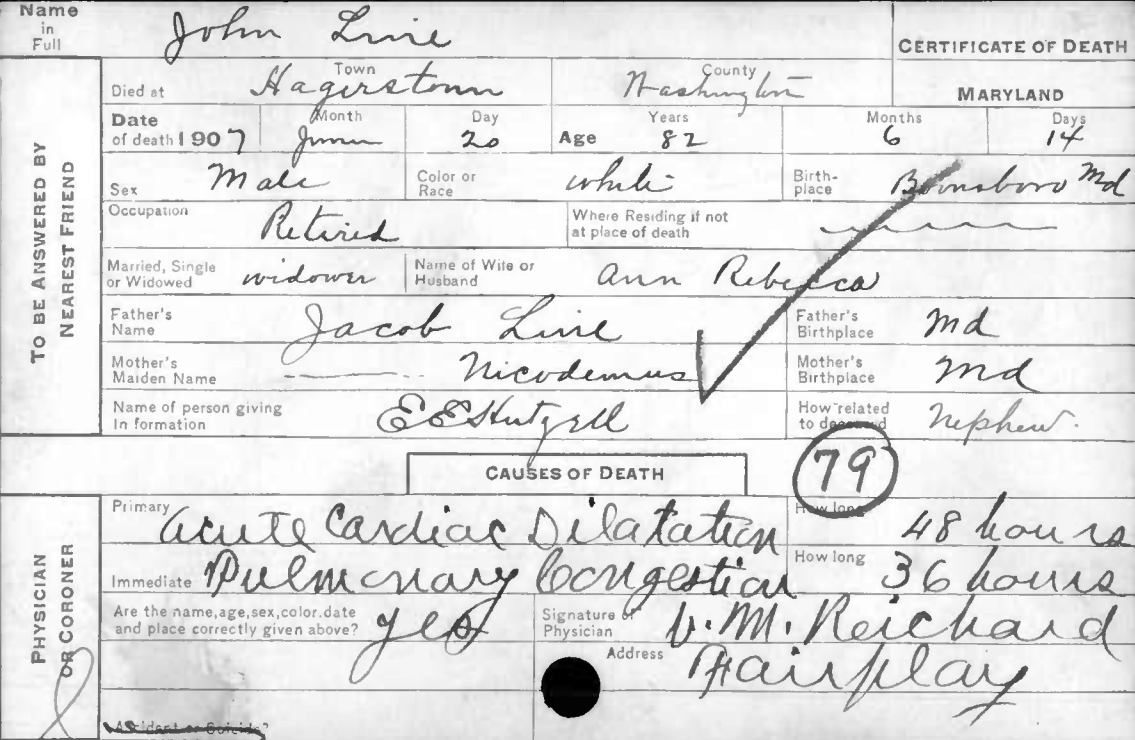 Name in Full John Line
CERTIFICATE OF DEATH
TO BE ANSWERED BY NEAREST FRIEND
Died at Hagerstown Town Washington County MARYLAND
Date of death 1907 Month June Day 20 Age Years 82 Months 6 Days 14
Sex Male Color or Race white Birth-place Boonsboro Md
Occupation Retired Where Residing if not at place of death
Married, Single or Widowed widower Name of Wife or Husband Ann Rebecca
Father's Name Jacob Line Father's Birthplace Md
Mother's Maiden Name Nicodemus Mother's Birthplace Md
Name of person giving In formation E E Hutzell How related to deceased Nephew.
79
CAUSES OF DEATH
PHYSICIAN OR CORONER
Primary Acute Cardiac Dilatation How long 48 hours
Immediate Pulmonary Congestion How long 36 hours
Are the name, age, sex, color. date and place correctly given above? yes Signature of Physician V. M. Reichard
Address Fairplay
Accident or Suicide?